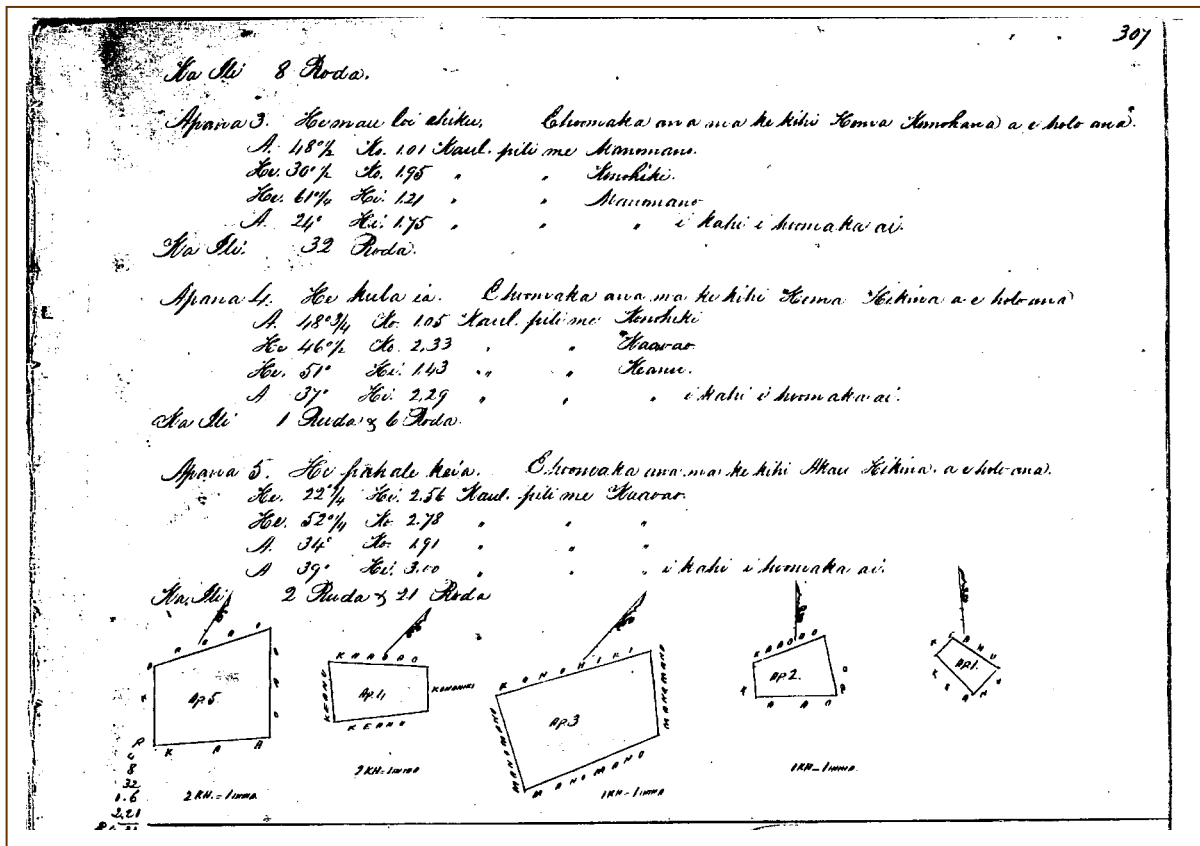 307
Ka Ili 8 Roda.
Apana 3. He mau loi ehiku. E hoomaka ana ma ke kihi Hema Komohana a e holo ana.
A. 48°½ Ko. 1.01 Kaul. pili me Manomano.
He. 30°½ Ko. 1.95 " " Konohiki.
He. 61°¼ Hi. 1.21 " " Manomano
A. 24° Hi. 1.75 " " " i kahi i hoomaka ai.
Ka Ili. 32 Roda.
Apana 4. He kula ia. E hoomaka ana ma ke kihi Hema Hikina a e holo ana
A. 48°¾ Ko. 1.05 Kaul. pili me Konohiki
He 46°½ Ko. 2.33 " " Kaawao
He. 51° Hi. 1.43 " " Keanu.
A 37° Hi. 2.29 " " " i kahi i hoomaka ai.
Ka Ili 1 Ruda & 6 Roda.
Apana 5. He pahale keia. E hoomaka ana ma ke kihi Akau Hikina. a e holo ana.
He. 22°¼ Hi. 2.56 Kaul. pili me Kaawao.
He. 52°¼ Ko. 2.78 " " "
A. 34° Ko. 1.91 " " "
A 39° Hi. 3.00 " " " i kahi i hoomaka ai.
Ka Ili 2 Ruda & 21 Roda
Ap.5
K A A
R
4
8
32
1.6
2.21
2 KH. = 1 INIHA
KAAOAO
KEANU
Ap.4
KONOHIKI
KEANO
2 KH = 1 INIHA
KONOHIKI
MANOMANO
Ap.3
MANOMANO
MANOMANO
1 KH = 1 INIHA
KAAOAO
Ap2.
K A A O
1 KH = 1 INIHA
KEANU
Ap1.
KEANU